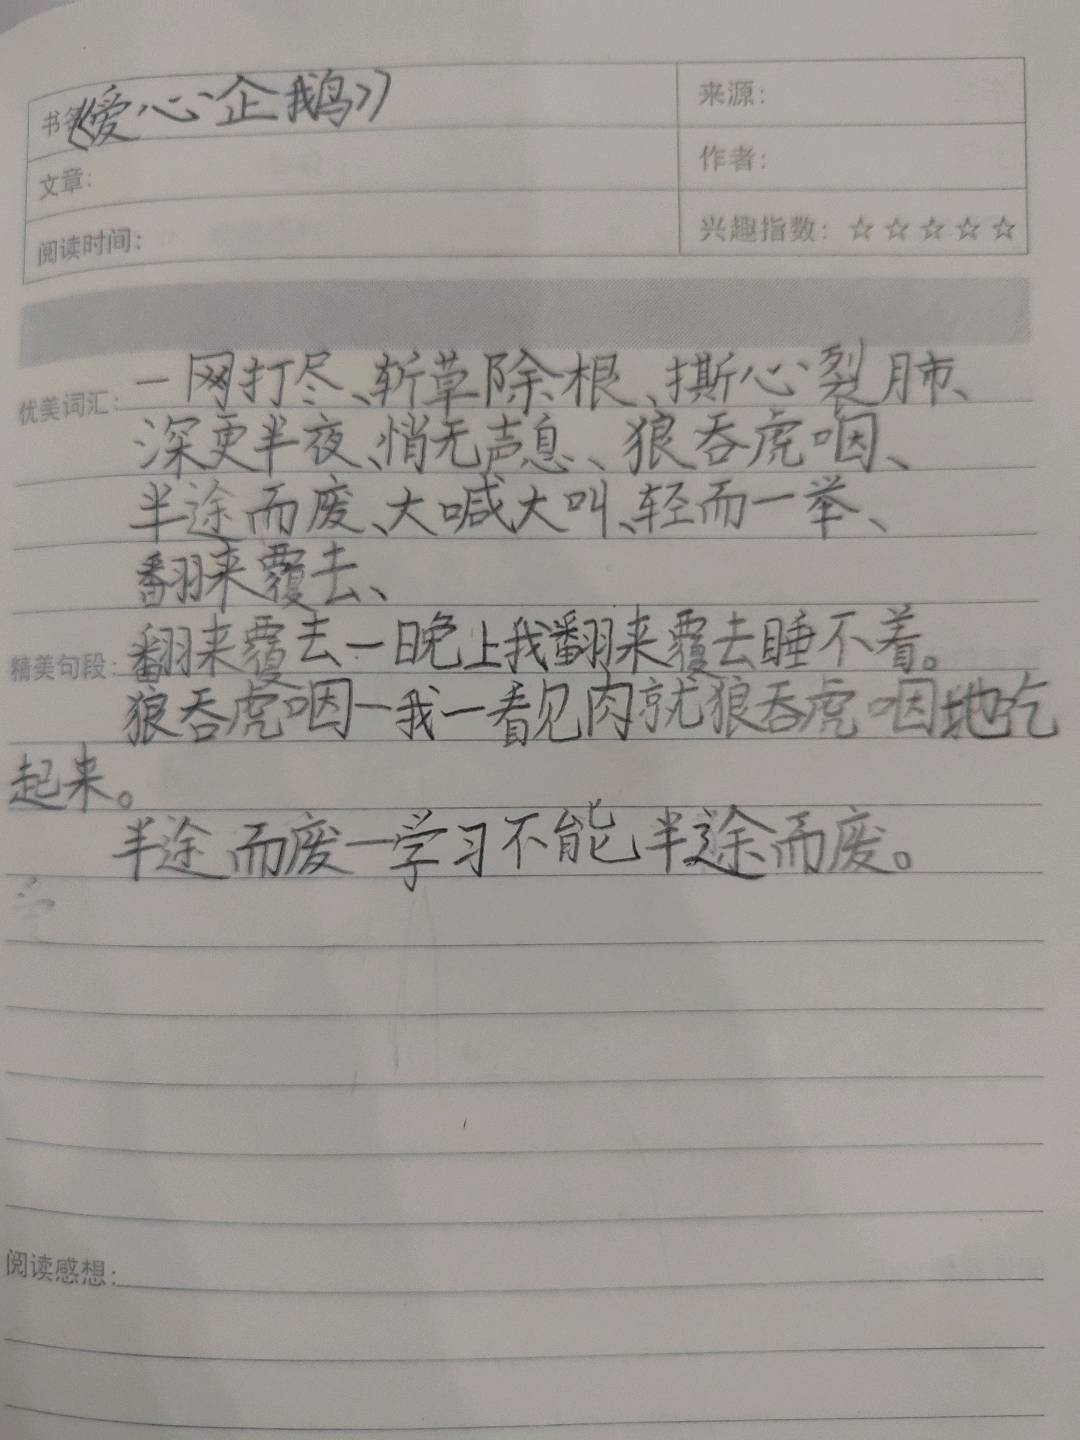 书名《爱心企鹅》 来源：
文章： 作者：
阅读时间： 兴趣指数：☆☆☆☆☆
优美词汇：一网打尽、斩草除根、撕心裂肺、
深更半夜、悄无声息、狼吞虎咽、
半途而废、大喊大叫、轻而一举、
翻来覆去、
精美句段：翻来覆去一日晚上我翻来覆去睡不着。
狼吞虎咽一我一看见肉就狼吞虎咽地吃
起来。
半途而废一学习不能半途而废。
阅读感想：